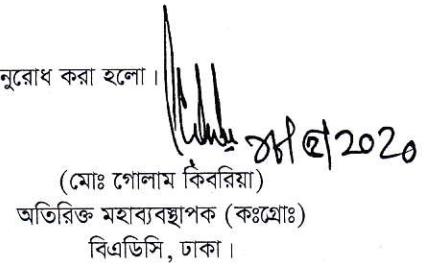 নুরোধ করা হলো।
২০২০
(মোঃ গোলাম কিবরিয়া)
অতিরিক্ত মহাব্যবস্থাপক (কঃগ্রোঃ)
বিএডিসি, ঢাকা।